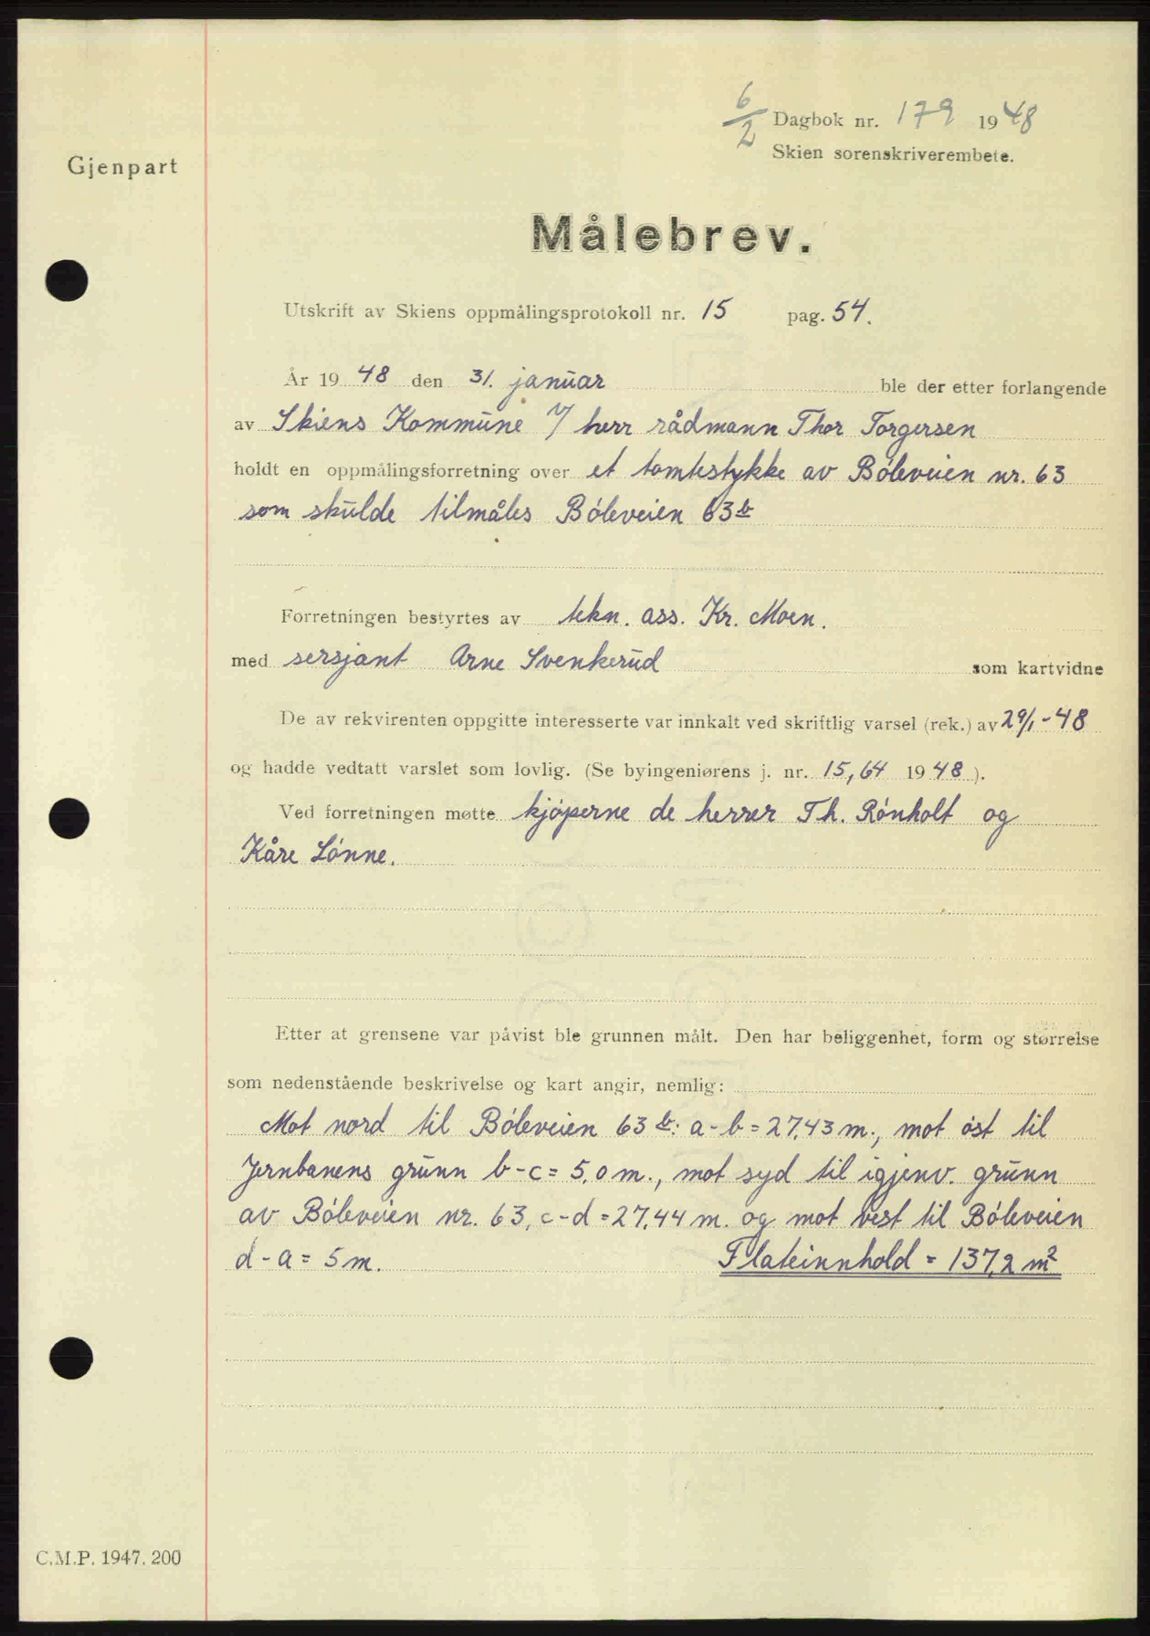 6/2 Dagbok nr. 179 1948
Skien sorenskriverembete.
Gjenpart
Målebrev.
Utskrift av Skiens oppmålingsprotokoll nr. 15 pag. 54.
År 1948 den 31. januar ble der etter forlangende
av Skiens Kommune v/ herr rådmann Thor Torgersen
holdt en oppmålingsforretning over et tomtestykke av Bøleveien nr. 63
som skulde tilmåles Bøleveien 63b
Forretningen bestyrtes av tekn. ass. Kr. Moen.
med sersjant Arne Svenkerud som kartvidne
De av rekvirenten oppgitte interesserte var innkalt ved skriftlig varsel (rek.) av 29/1-48
og hadde vedtatt varslet som lovlig. (Se byingeniørens j. nr. 15,64 1948).
Ved forretningen møtte kjøperne de herrer Th. Rønholt og
Kåre Lønne.
Etter at grensene var påvist ble grunnen målt. Den har beliggenhet, form og størrelse
som nedenstående beskrivelse og kart angir, nemlig:
Mot nord til Bøleveien 63b: a-b = 27,43 m., mot øst til
Jernbanens grunn b-c = 5,0 m., mot syd til igjenv. grunn
av Bøleveien nr. 63, c-d = 27,44 m. og mot vest til Bøleveien
d-a = 5 m. Flateinnhold = 137,2 m²
C.M.P. 1947. 200